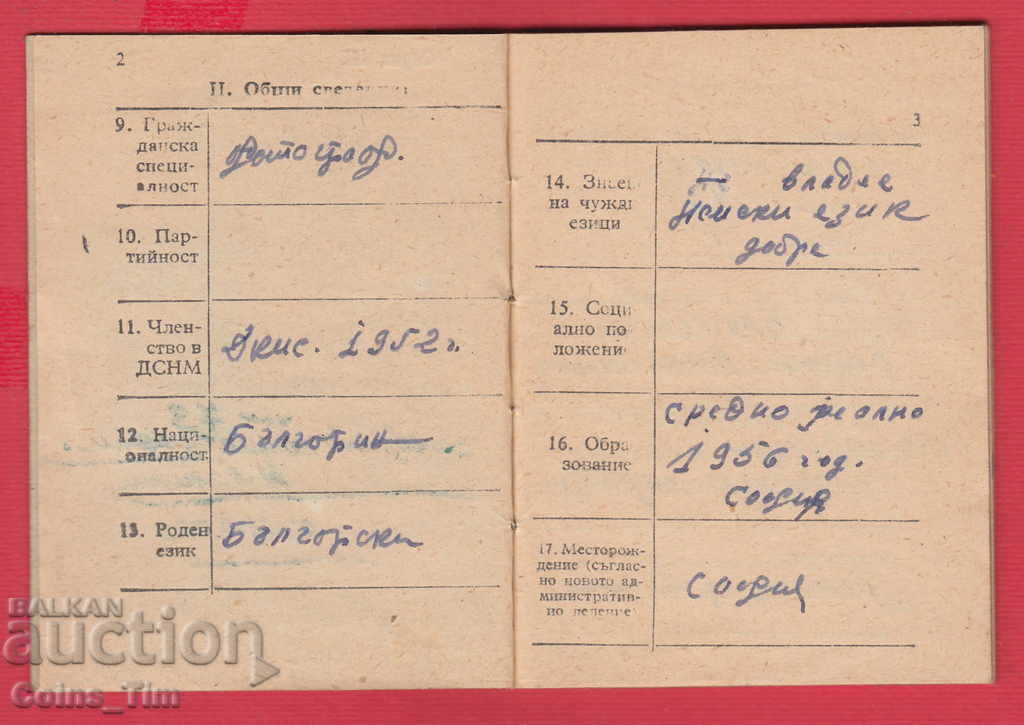 2
II. Общи сведения
9. Граж-
данска
специ-
алност
Фотограф.
10. Пар-
тийност
11. Член-
ство в
ДСНМ
Дкмс. 1952 г.
12. Наци-
оналност
Българин
13. Роден
език
Български
3
14. Знаен
на чужд
езици
владее
Немски език
добре
15. Соци
ално по
ложени
16. Обра
зование
средно реално
1956 год.
София
17. Месторож-
дение (съглас-
но новото ад-
министратив-
но деление
София
BALKAN
auction
Coins_Tim